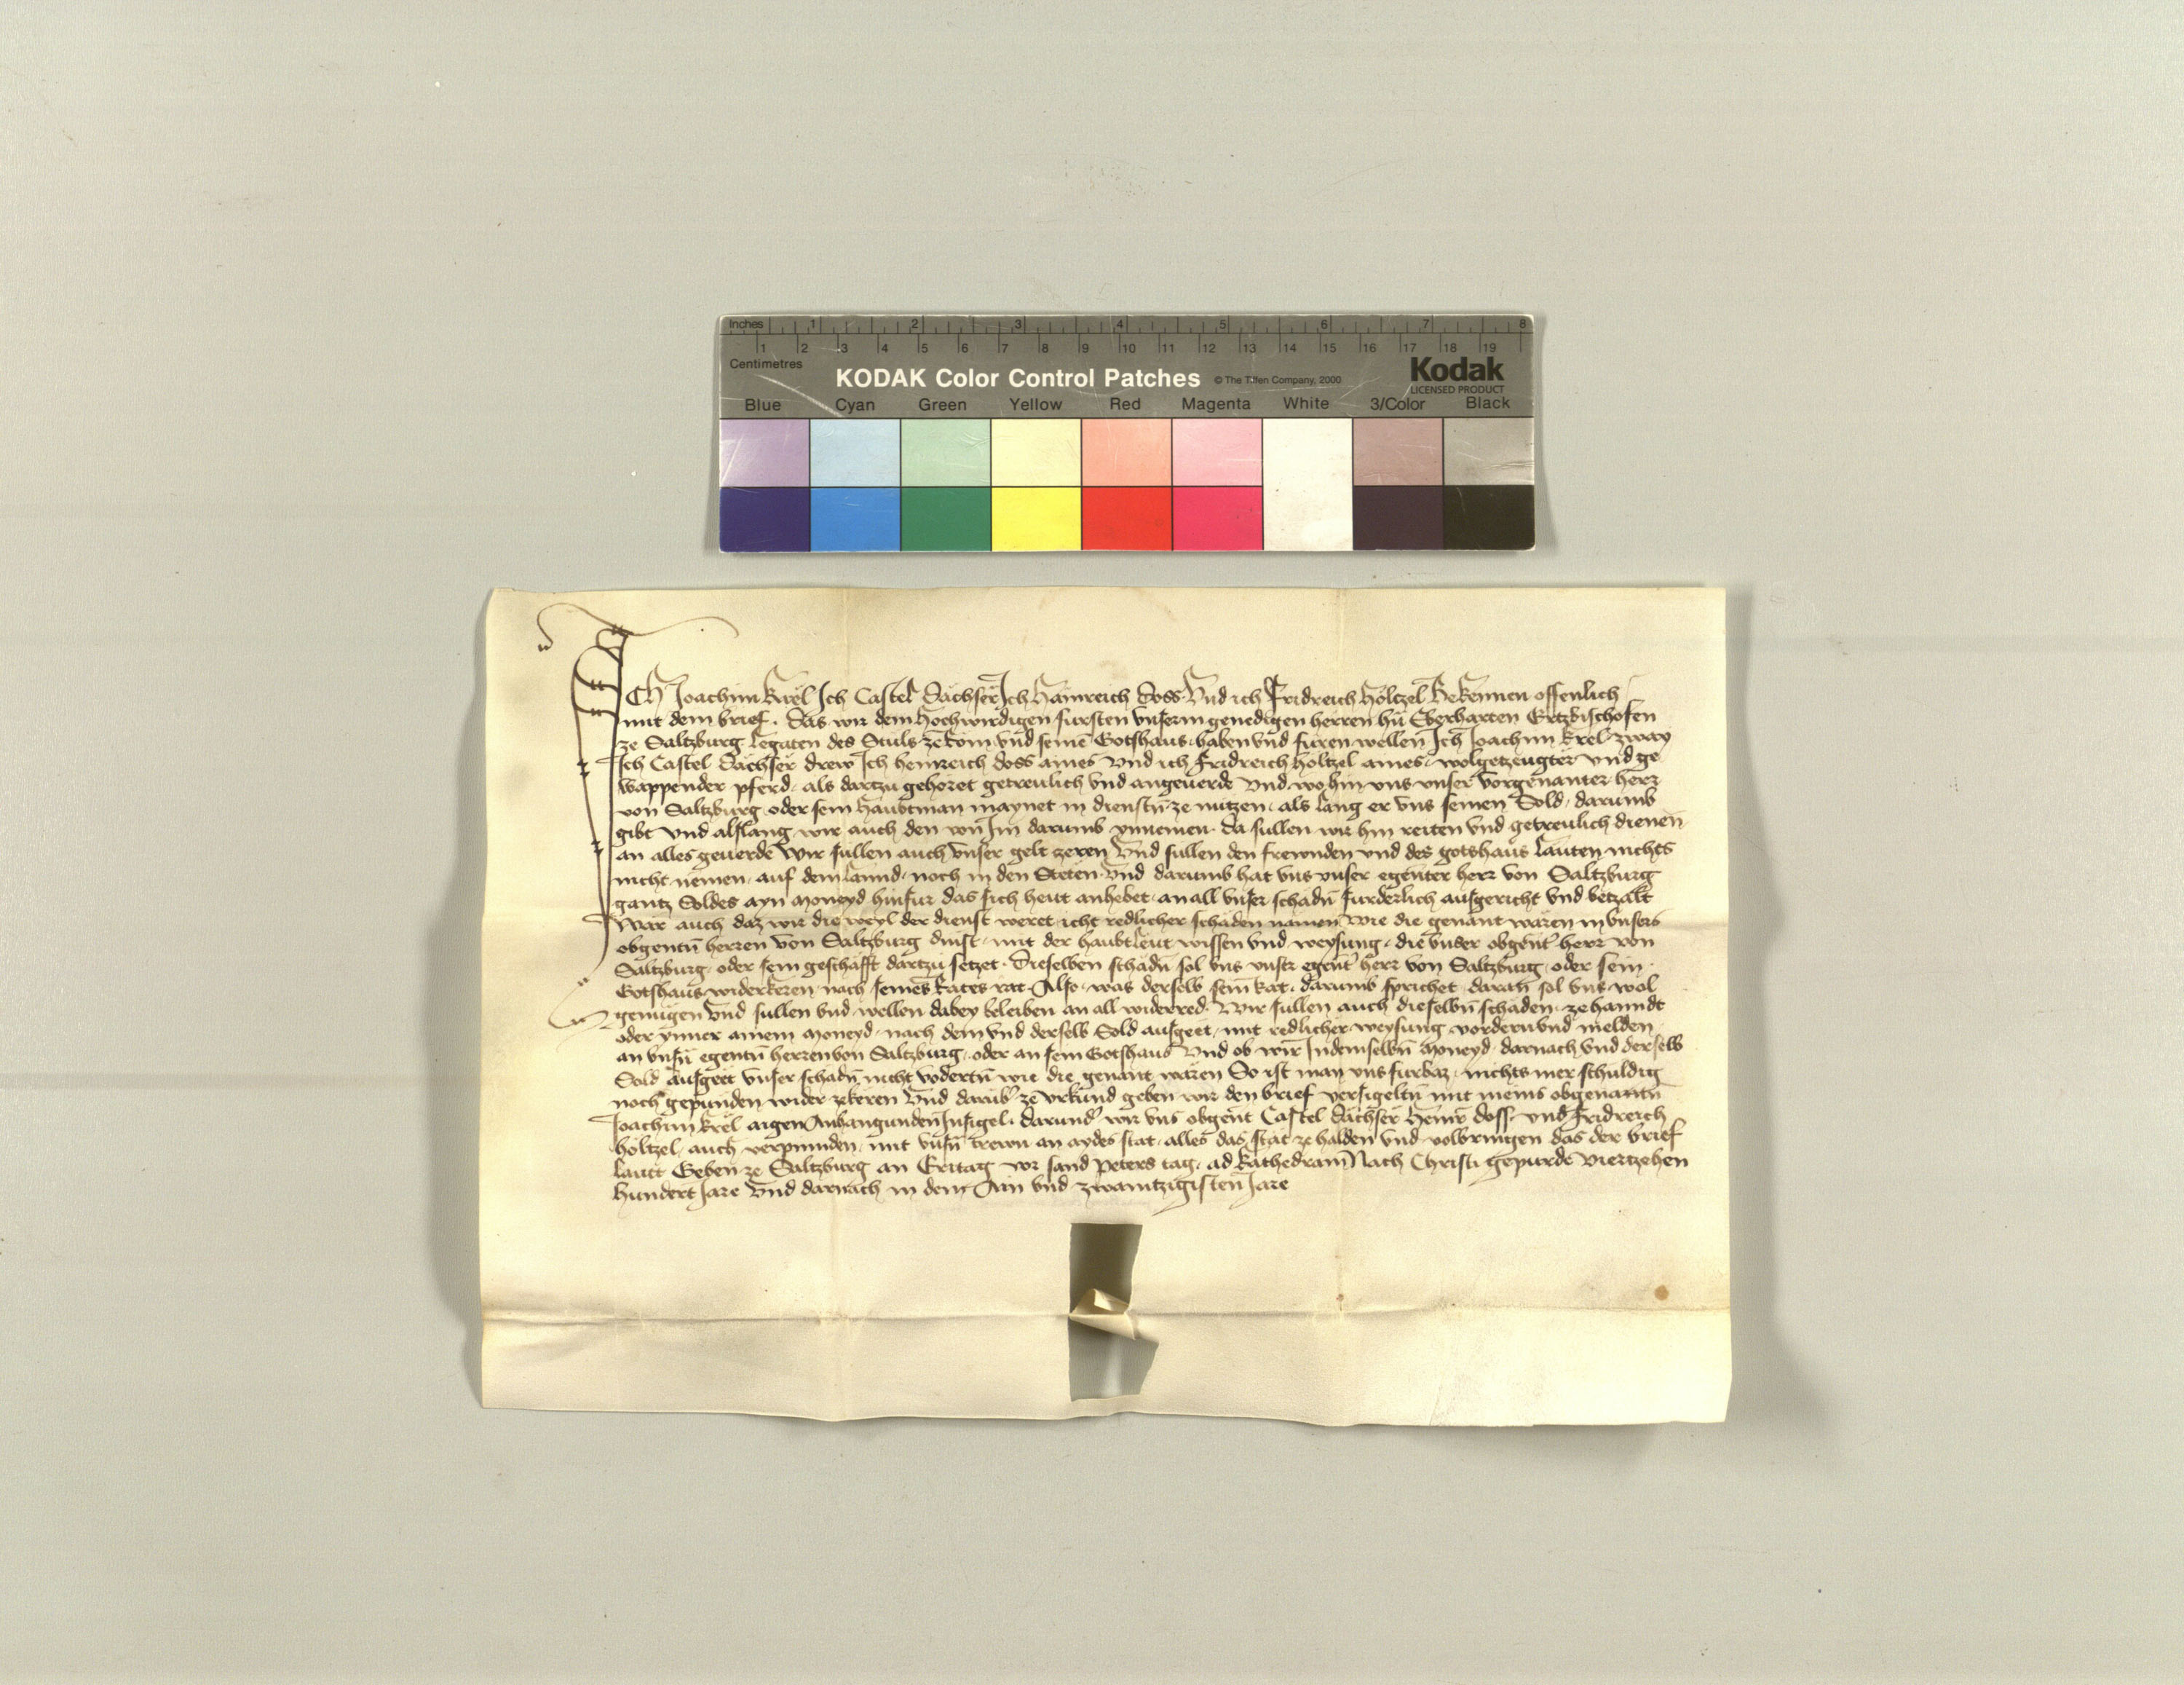 Inches 1 2 3 4 5 6 7 8
1 2 3 4 5 6 7 8 9 10 11 12 13 14 15 16 17 18 19
Centimetres
KODAK Color Control Patches © The Tiffen Company, 2000 Kodak
LICENSED PRODUCT
Blue Cyan Green Yellow Red Magenta White 3/Color Black
ICh Joachim Krel Ich Castel Dächser Ich Hainreich Doss Vnd ich Fridreich Höltzel Bekennen offenlich
mit dem brief. das wir dem Hochwirdigen fursten vnserm genedigen herren hn̄ Eberharten Ertzbischofen
ze Saltzburg Legaten des Stuls ze Rom vnd seinē Gotshaus haben vnd füren wellen Ich Joachim Krel zway
Ich Castel Dächser drew Ich heinreich doss aines Vnd ich Fridreich höltzel aines wolgetzeugter vnd ge
wappender pferd, als dartzu gehöret getreulich vnd angeuerde Vnd wohin vns vnser vorgenanter herr
von Saltzburg oder sein Haubtman maynet in dienstn̄ ze nutzen, als lang er vns seinen Sold, darumb
gibt vnd alslang wir auch den von Im darumb ynnemen. da sullen wir hin reiten vnd getreulich dienen
an alles geuerde Wir sullen auch vnser gelt zeren Vnd sullen den frewnden vnd des gotshaus Läuten nichts
nicht nemen, auf dem lannd, noch in den Steten Vnd darumb hat vns vnser egen̄ter herr von Saltzburg
gantz Soldes ayn Moneyd hinfur das sich heut anhebet, an all vnser schädn̄ furderlich ausgericht vnd betzalt
Wär auch daz wir die weyl der dienst weret icht redlicher schäden nämen wie die genant wären in vnsers
obgentn̄ herren von Saltzburg dinst, mit der haubtleut wissen vnd weysung, die vnser obgen̄t herr von
Saltzburg, oder sein geschäfft dartzu setzet. Dieselben schädn̄ sol vns vnser egen̄t herr von Saltzburg, oder sein
Gotshaus widerkeren nach seines Rates rat Also, was derselb sein Rat, darumb sprichet daran sol vns wol
genugen Vnd sullen vnd wellen dabey beleiben an all widerred. Wir sullen auch dieselbn̄ schäden, ze hanndt
oder ynner ainem Moneyd, nach dem vnd derselb Sold ausgeet, mit redlicher weysung vordern vnd melden
an vnsn̄ egentn̄ herren von Saltzburg, oder an sein Gotshaus Vnd ob wir In demselbn̄ Moneyd, darnach vnd derselb
Sold ausgeet vnser schädn̄ nicht vodertn̄ wie die genant wären So ist man vns furbaz, nichts mer schuldig
noch gepunden wider zekeren Vnd darub̄ ze vrkund geben wir den brief versigeltn̄ mit meins obgenantn̄
Joachim Krel aigen Anhangunden Insigel. darund̄ wir vns obgen̄t Castel Dächser Heinr̄ doss vnd Fridreich
höltzel, auch verpinnden, mit vnsn̄ trewn an aydes stat, alles das stät ze halden vnd volbringen das der brief
lautt Geben ze Saltzburg an Eritag vor sand Peters tag, ad Kathedram Nach Christi gepurde viertzehen
hundert Jare Vnd darnach in dem Ain vnd zwaintzigisten Jare